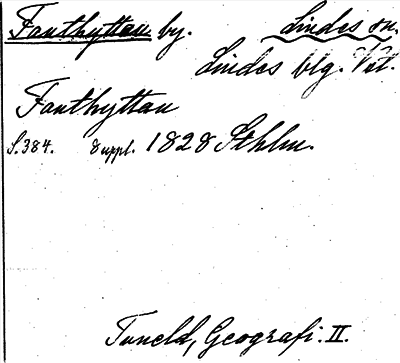 Fanthyttan by. Lindes sn.
Lindes blg. Vstl.
Fanthyttan
S. 384. Suppl. 1828 Sthlm.
Tuneld, Geografi. II.